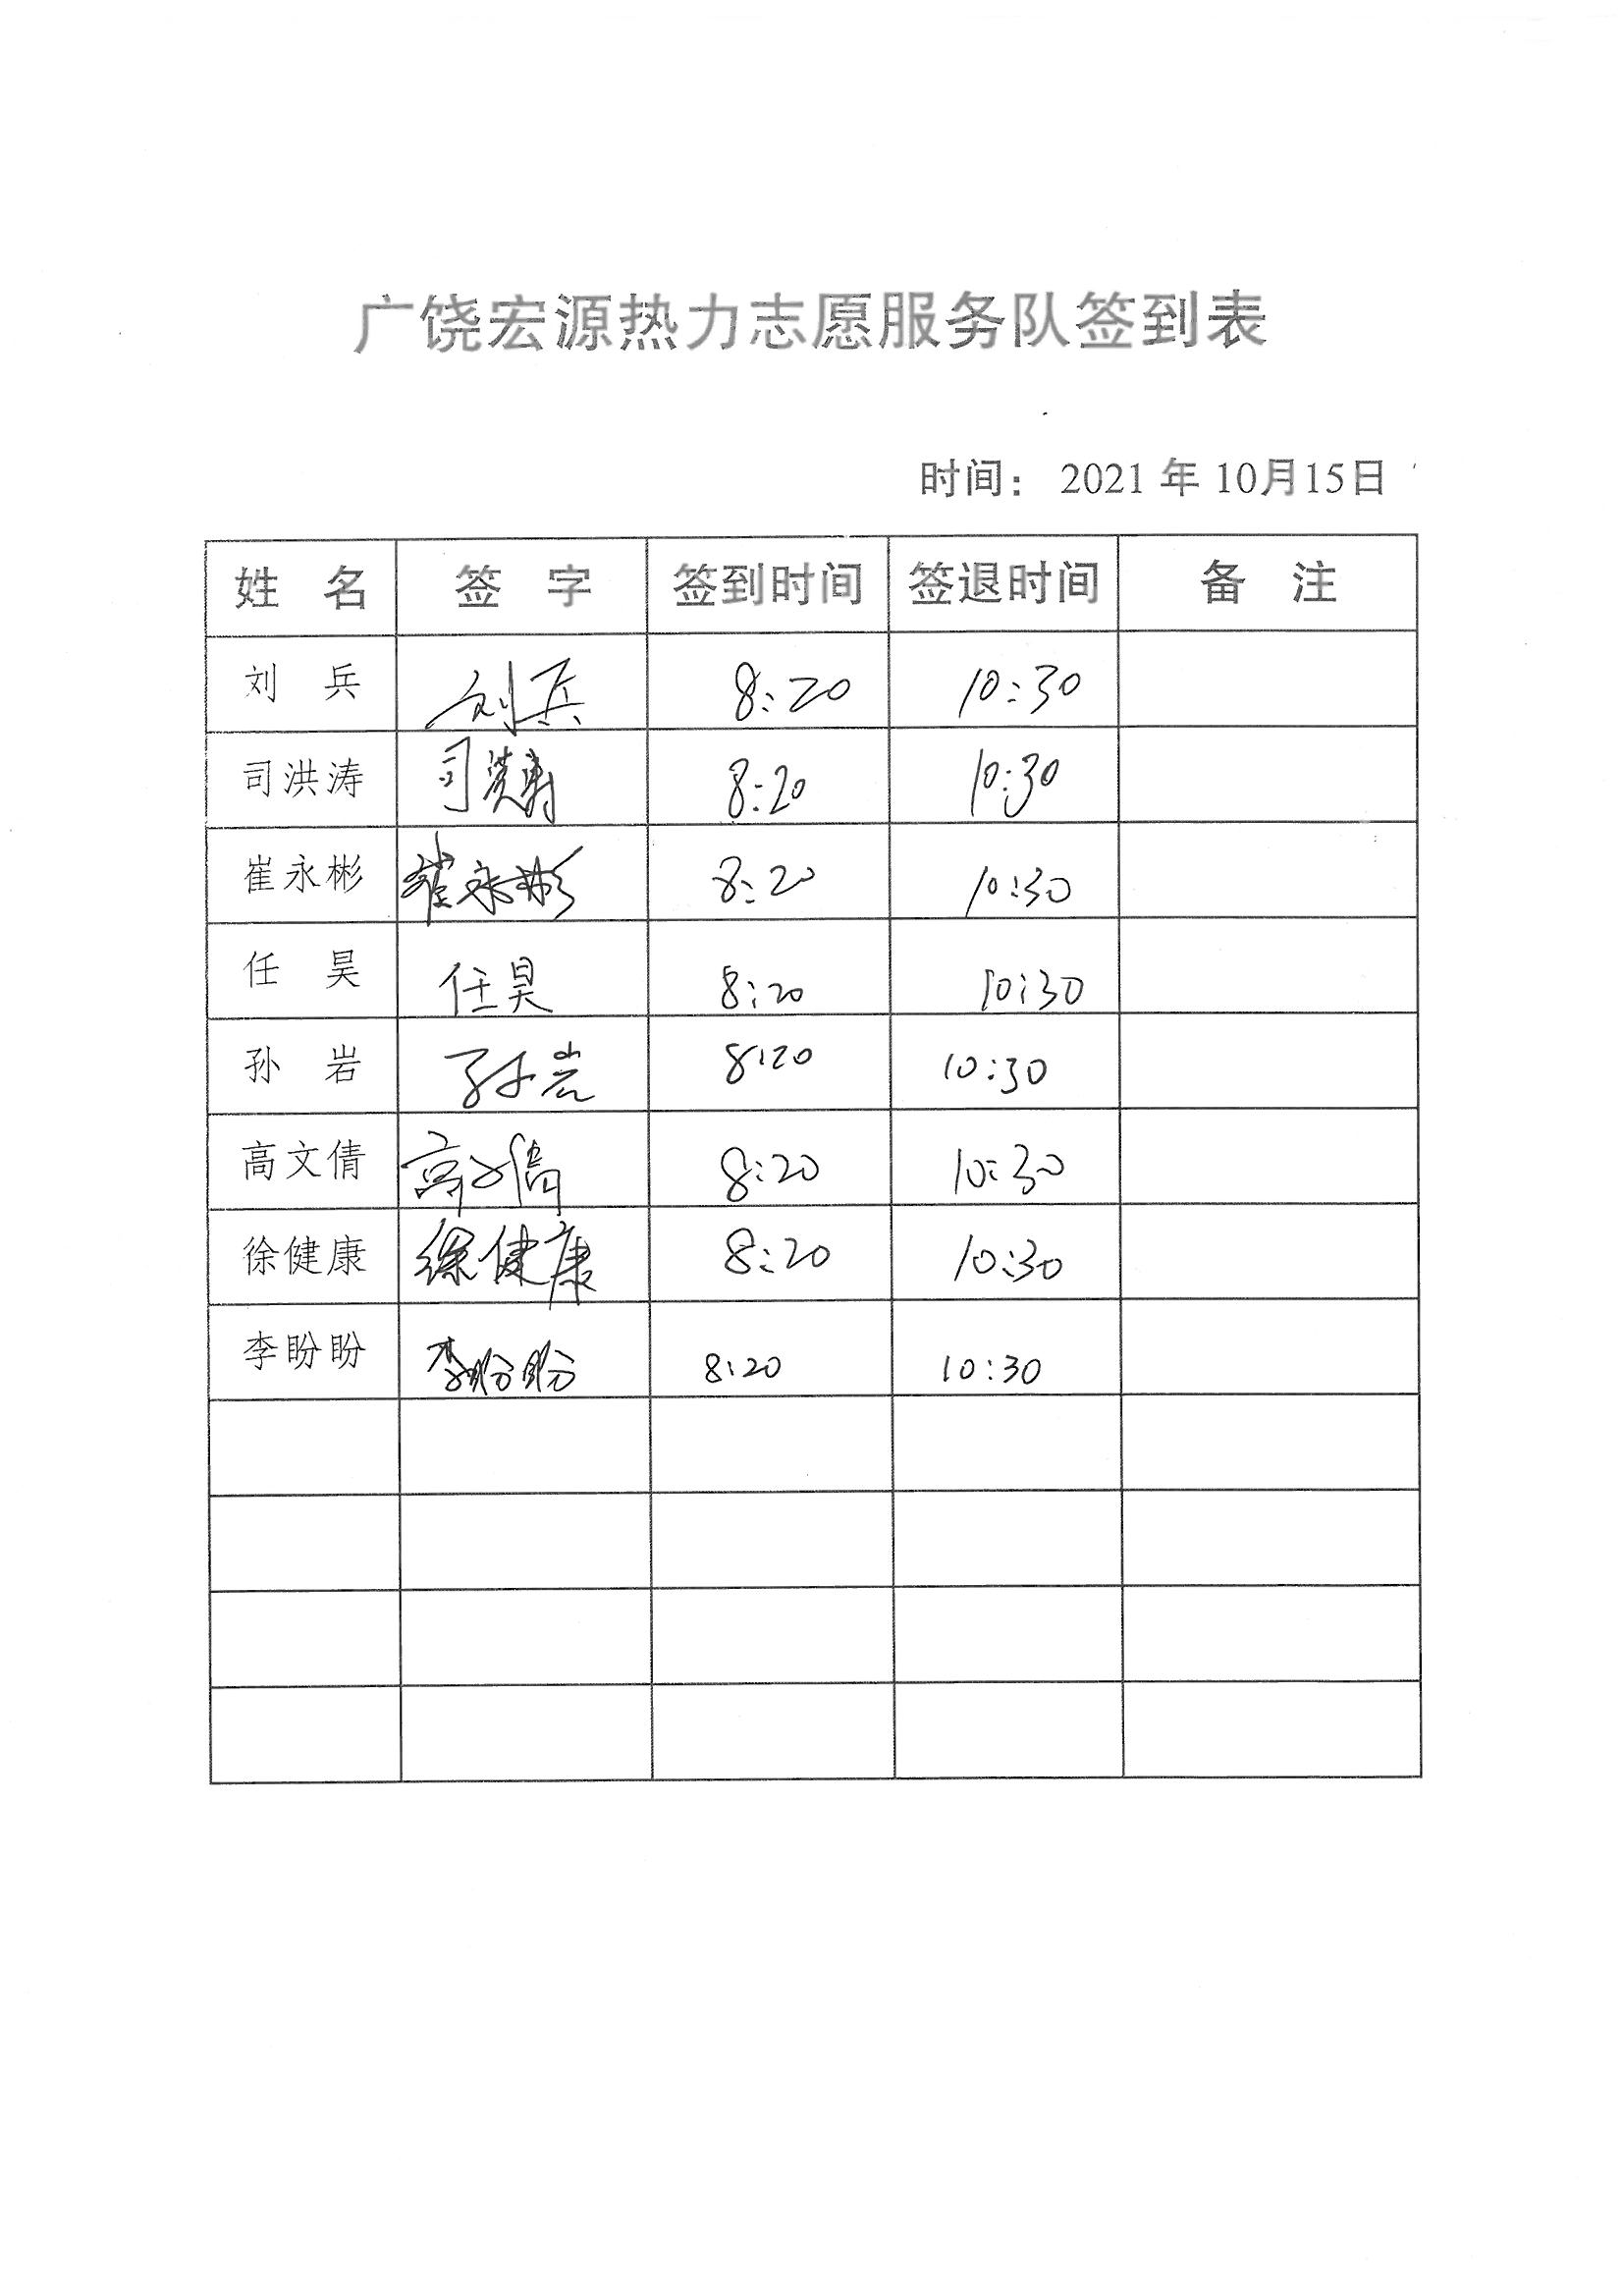 广饶宏源热力志愿服务队签到表
时间： 2021 年 10月15日
姓 名 签 字 签到时间 签退时间 备 注
刘 兵 刘兵 8:20 10:30
司洪涛 司洪涛 8:20 10:30
崔永彬 崔永彬 8:20 10:30
任 昊 任昊 8:20 10:30
孙 岩 孙岩 8:20 10:30
高文倩 高文倩 8:20 10:30
徐健康 徐健康 8:20 10:30
李盼盼 李盼盼 8:20 10:30